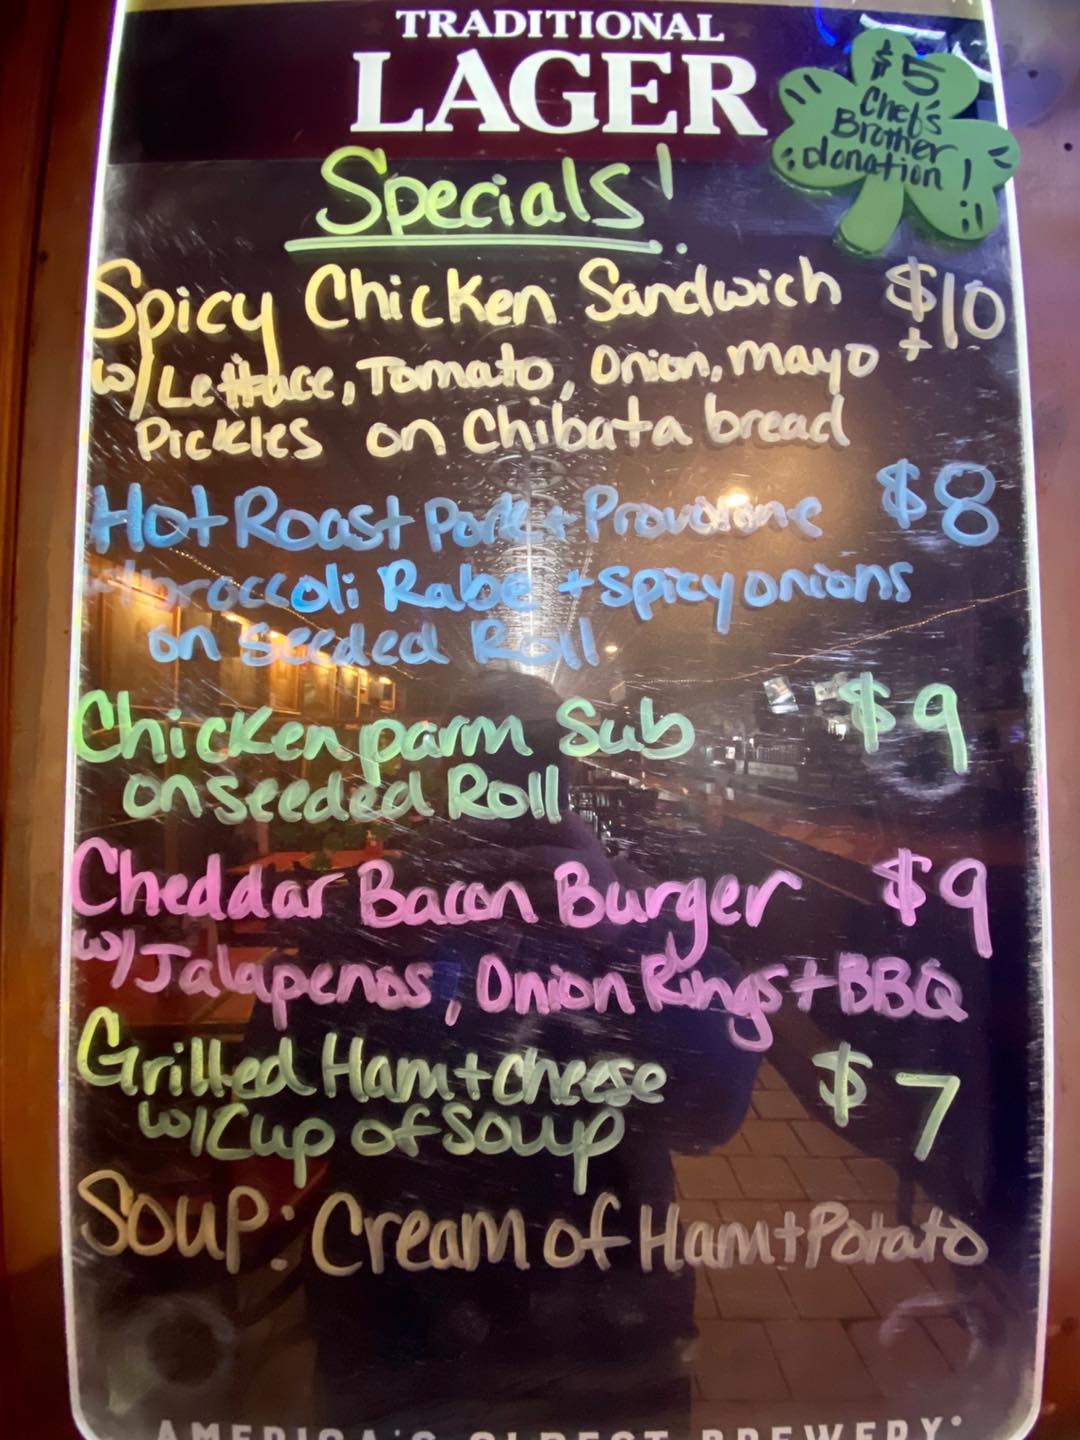 TRADITIONAL
LAGER
$5
Chef's
Brother
donation!
Specials!
Spicy Chicken Sandwich $10
w/Lettuce, Tomato, Onion, mayo +
Pickles on Chibata bread
Hot Roast Pork + Provolone $8
w/broccoli Rabe + spicy onions
on seeded Roll
Chicken parm Sub $9
on seeded Roll
Cheddar Bacon Burger $9
w/Jalapenos, Onion Rings + BBQ
Grilled Ham + cheese $7
w/Cup of Soup
Soup: Cream of Ham + Potato
AMERICA'S OLDEST BREWERY